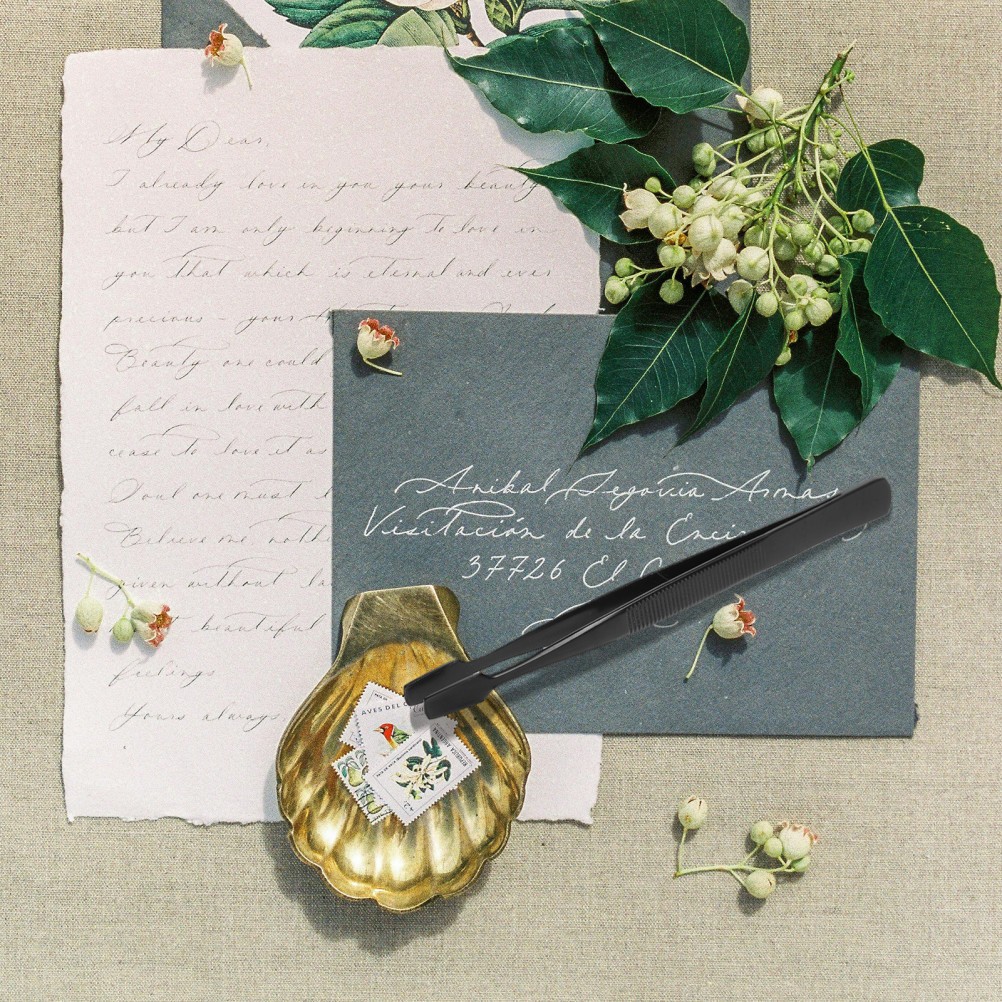 My Dear,
I already love in you your beauty,
but I am only beginning to love in
you that which is eternal and ever
precious - your
Beauty one could
fall in love with
cease to love it as
Soul one must
Believe me,
given without
beautiful
feelings
Yours always,
Anibal Segovia Armas
Visitación de la
37726 El
AVES DEL